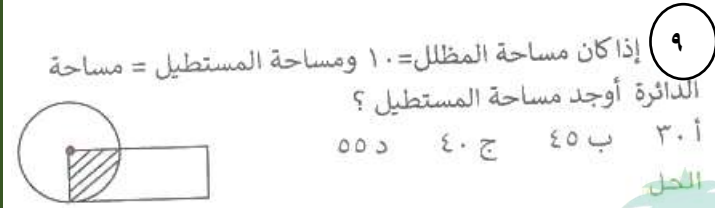 ٩ إذا كان مساحة المظلل=١٠ ومساحة المستطيل = مساحة
الدائرة أوجد مساحة المستطيل ؟
أ ٣٠ ب ٤٥ ج ٤٠ د ٥٥
الحل